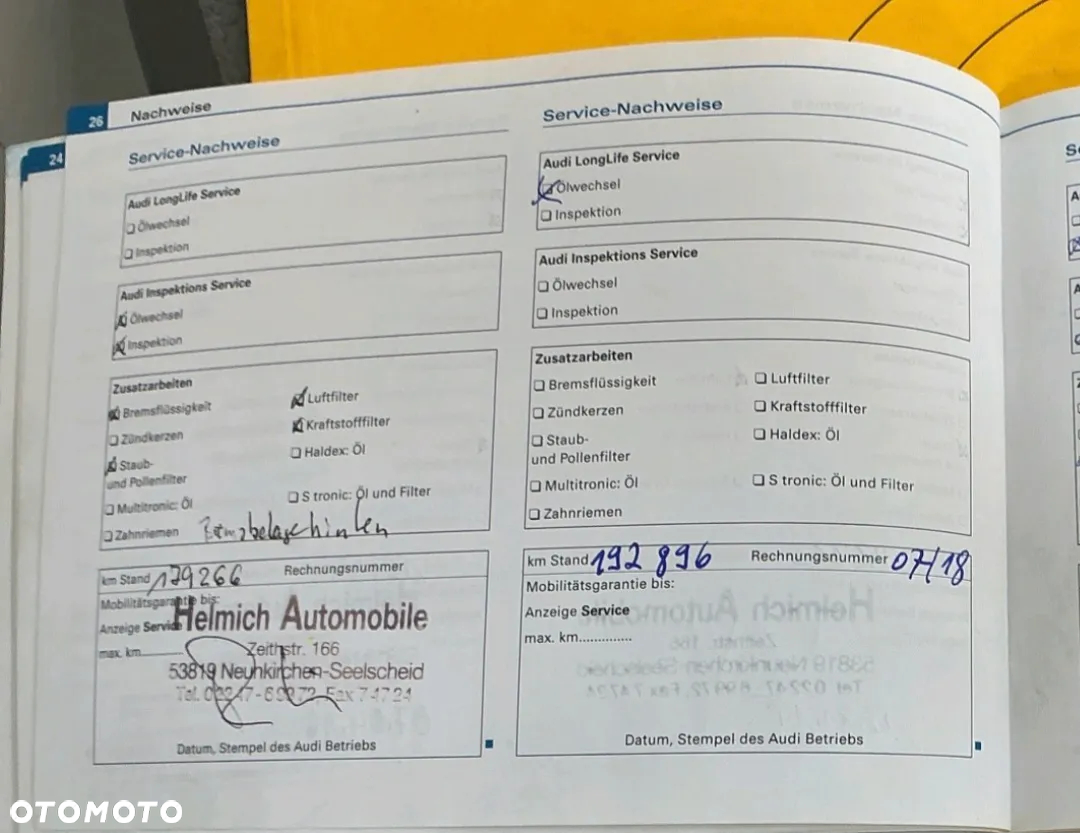 26 Nachweise
24
Service-Nachweise
Audi LongLife Service
Ölwechsel
Inspektion
Audi Inspektions Service
Ölwechsel
Inspektion
Zusatzarbeiten
Bremsflüssigkeit
Luftfilter
Zündkerzen
Kraftstofffilter
Staub-
und Pollenfilter
Haldex: Öl
Multitronic: Öl
S tronic: Öl und Filter
Zahnriemen
km Stand 179266 Rechnungsnummer
Mobilitätsgarantie bis:
Anzeige Service
max. km
Helmich Automobile
Zeithstr. 166
53819 Neunkirchen-Seelscheid
Fax 74724
Datum, Stempel des Audi Betriebs
Service-Nachweise
Audi LongLife Service
Ölwechsel
Inspektion
Audi Inspektions Service
Ölwechsel
Inspektion
Zusatzarbeiten
Bremsflüssigkeit
Luftfilter
Zündkerzen
Kraftstofffilter
Staub-
und Pollenfilter
Haldex: Öl
Multitronic: Öl
S tronic: Öl und Filter
Zahnriemen
km Stand 192 896 Rechnungsnummer 07/18
Mobilitätsgarantie bis:
Anzeige Service
max. km..............
Datum, Stempel des Audi Betriebs
OTOMOTO